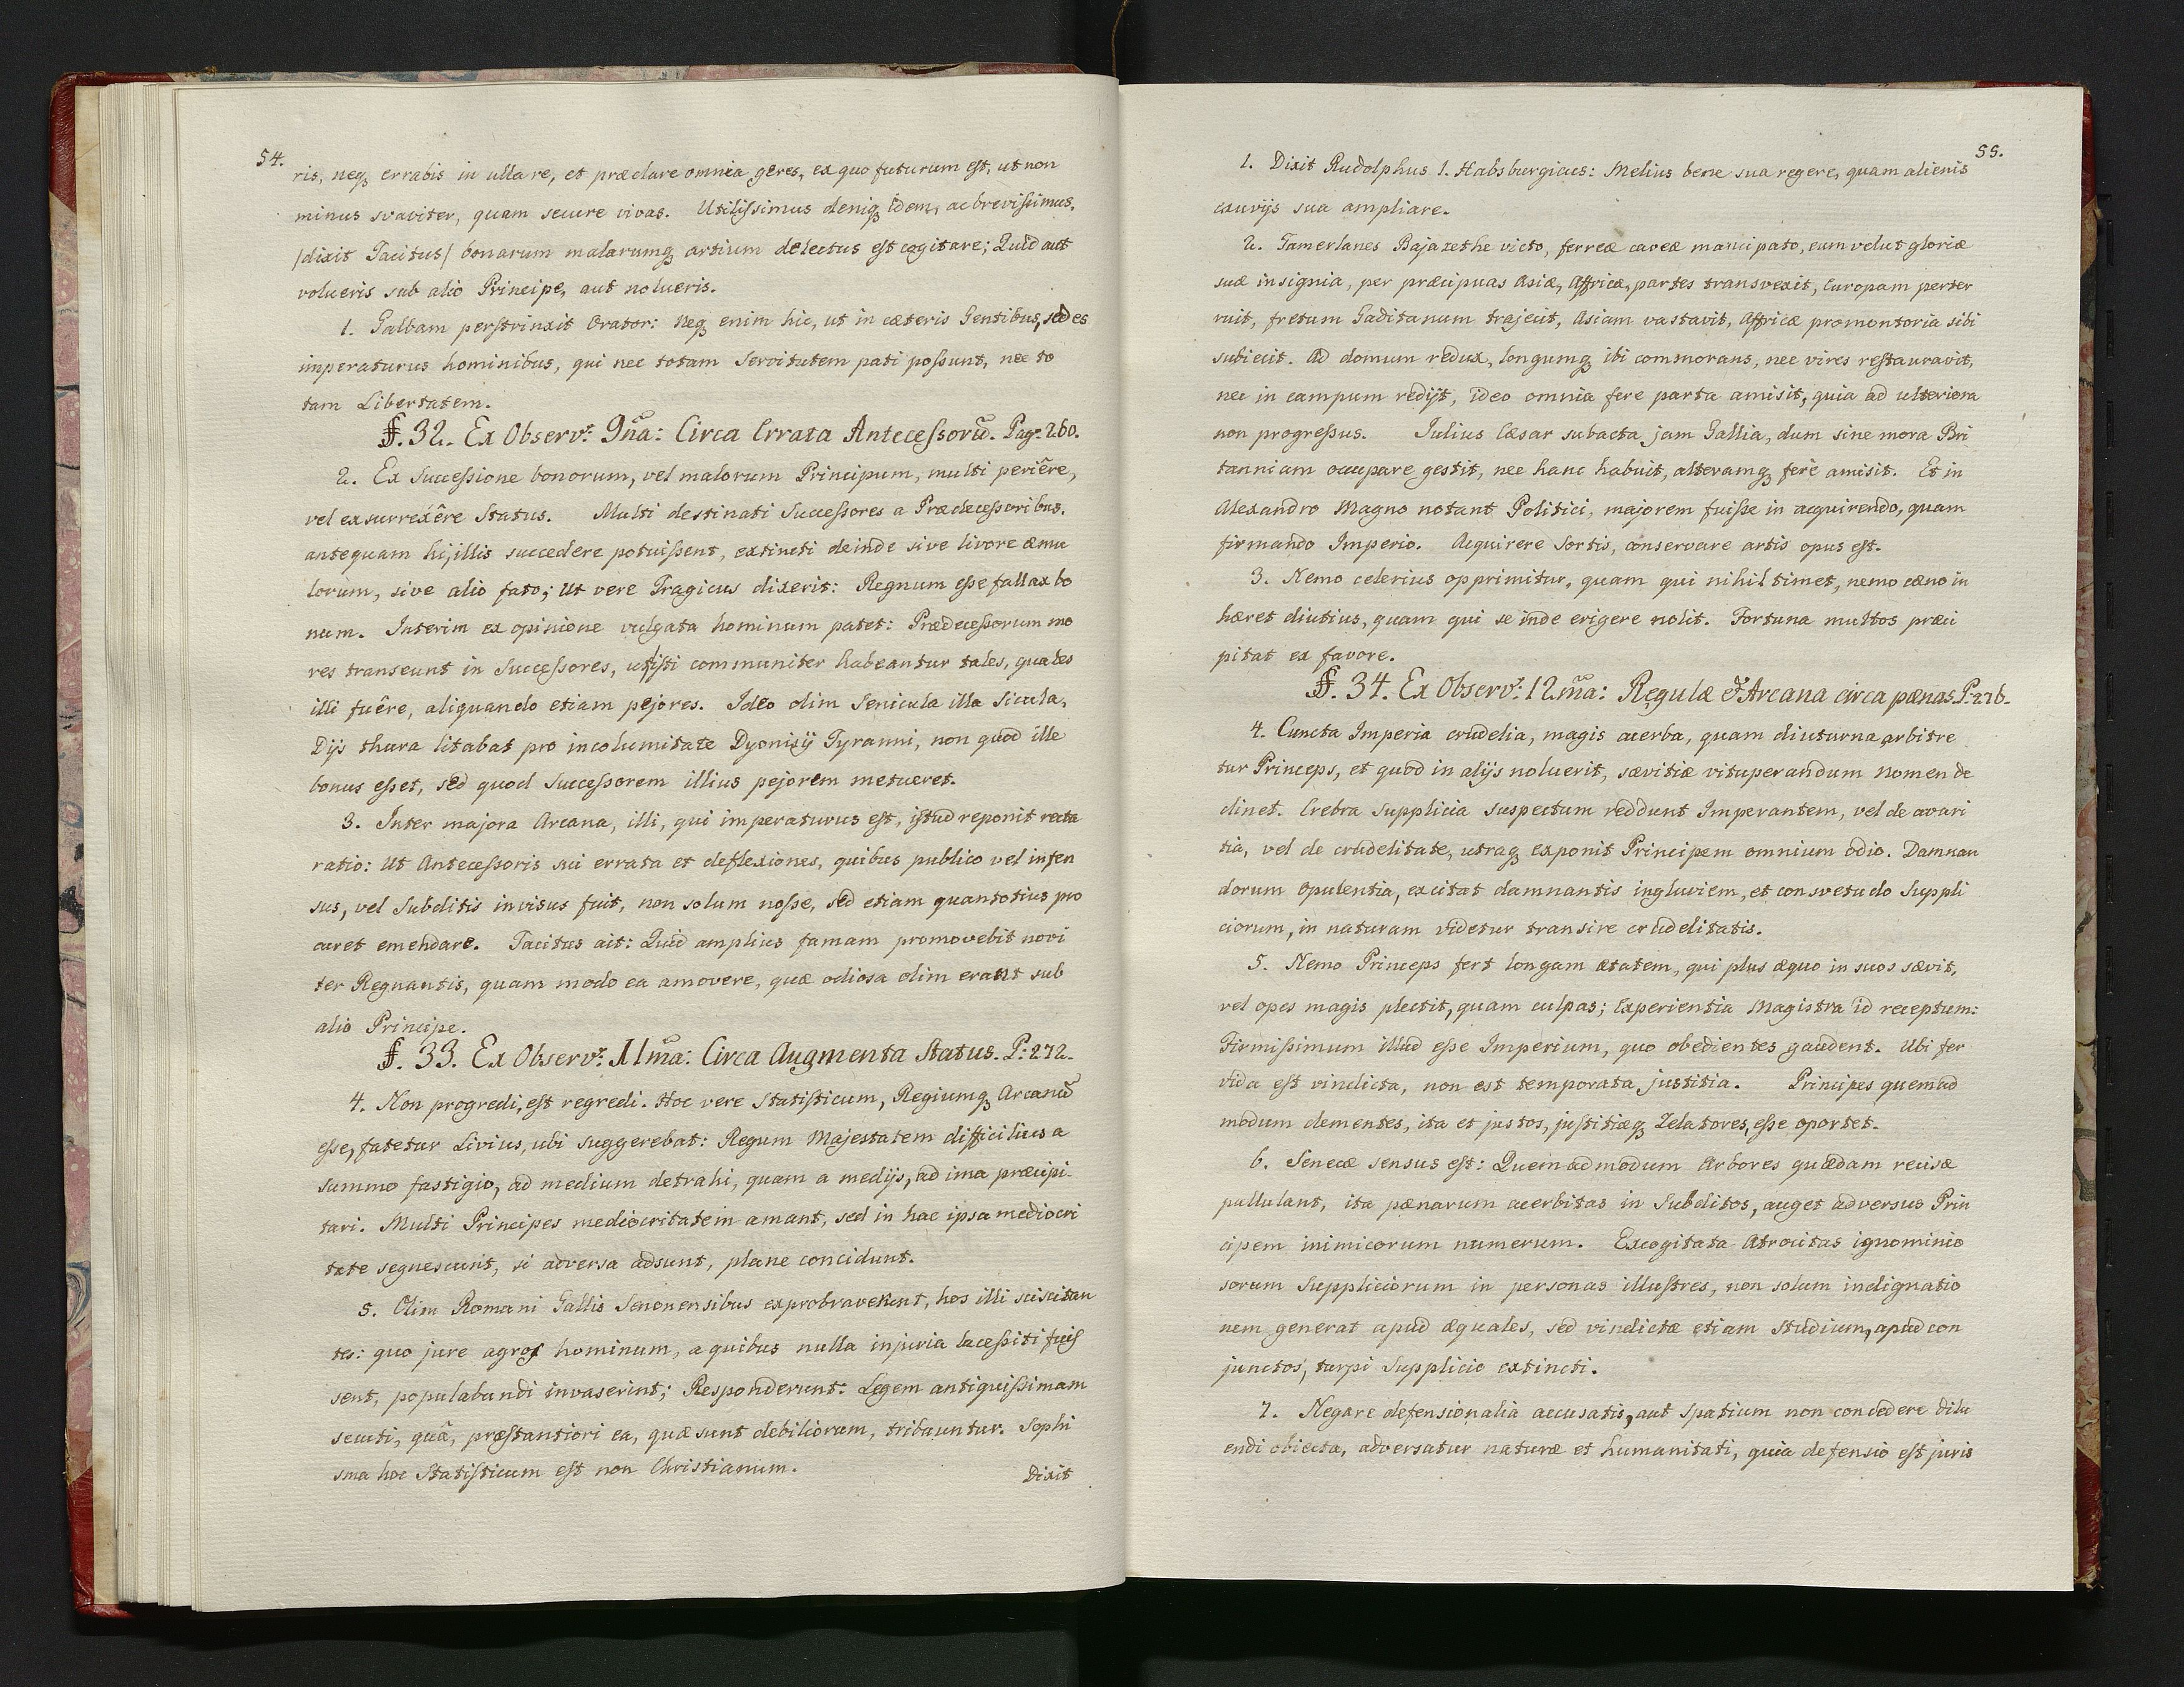 54.
ris, neq₃ errabis in ulla re, et præclare omnia geres, ex quo futurum est, ut non
minus svaviter, quam secure vivas. Utilissimus deniq₃ idem, ac brevissimus,
/dixit Tacitus/ bonarum malarumq₃ artium delectus est cogitare; Quid aut
volueris sub alio Principe, aut nolueris.
1. Galbam perstrinxit Orator: neq₃ enim hic, ut in cæteris Gentibus, sed es
imperaturus hominibus, qui nec totam Servitutem pati possunt, nec to
tam Libertatem.
§. 32. Ex Observ: 9na: Circa Errata Antecessorū. Pag: 260.
2. Ex Successione bonorum, vel malorum Principum, multi periêre,
vel exsurrexêre Status. Multi destinati Successores a Prædecessoribus,
antequam hi, illis succedere potuissent, extincti deinde sive livore æmu
lorum, sive alio fato; Ut vere Tragicus dixerit: Regnum esse fallax bo
num. Interim ex opinione vulgata hominum patet: Prædecessorum mo
res transeunt in Successores, ut isti communiter habeantur tales, quales
illi fuêre, aliquando etiam pejores. Ideo olim Senicula illa Sicula,
Dijs thura litabat pro incolumitate Dyonisij Tyranni, non quod ille
bonus esset, sed quod Successorem illius pejorem metueret.
3. Inter majora Arcana, illi, qui imperaturus est, istud reponit recta
ratio: Ut Antecessoris sui errata et deflexiones, quibus publico vel infen
sus, vel Subditis invisus fuit, non solum nosse, sed etiam quantotius pro
curet emendare. Tacitus ait: Quid amplius famam promovebit novi
ter Regnantis, quam modo ea amovere, quæ odiosa olim erant sub
alio Principe.
§. 33. Ex Observ: 11ma: Circa Augmenta Status. P: 272.
4. Non progredi, est regredi. Hoc vere Statisticum, Regiumq₃ Arcanū
esse, fatetur Livius, ubi suggerebat: Regum Majestatem difficilius a
summo fastigio, ad medium detrahi, quam a medijs, ad ima præcipi-
tari. Multi Principes mediocritatem amant, sed in hac ipsa mediocri
tate segnescunt, si adversa adsunt, plane concidunt.
5. Olim Romani Gallis Senonensibus exprobraverunt, hos illi sciscitan
tes: quo jure agros hominum, a quibus nulla injuria lacessiti fuis
sent, populabundi invaserint; Responderunt: Legem antiquissimam
secuti, quâ, præstantiori ea, quæ sunt debiliorum, tribuuntur. Sophi
sma hoc Statisticum est non Christianum.
Dixit
55.
1. Dixit Rudolphus 1. Habsburgicus: Melius bene sua regere, quam alienis
exuvijs sua ampliare.
2. Tamerlanes Bajazethe victo, ferreæ caveæ mancipato, eum velut gloriæ
suæ insignia, per præcipuas Asiæ, Affricæ, partes transvexit, Europam perter
ruit, fretum Gaditanum trajecit, Asiam vastavit, Affricæ promontoria sibi
subiecit. Ad domum redux, longumq₃ ibi commorans, nec vires restauravit,
nec in campum redijt, ideo omnia fere parta amisit, quia ad ulteriora
non progressus. Iulius Cæsar subacta jam Gallia, dum sine mora Bri
tanniam occupare gestit, nec hanc habuit, alteramq₃ ferè amisit. Et in
Alexandro Magno notant Politici, majorem fuisse in acquirendo, quam
firmando Imperio. Acquirere Sortis, conservare artis opus est.
3. Nemo celerius opprimitur, quam qui nihil timet, nemo cæno in
hæret diutius, quam qui se inde erigere nolit. Fortuna multos præci
pitat ex favore.
§. 34. Ex Observ: 12ma: Regulæ & Arcana circa pænas. P: 276.
4. Cuncta Imperia crudelia, magis acerba, quam diuturna arbitre
tur Princeps, et quod in alijs noluerit, sævitiæ vituperandum nomen de
clinet. Crebra supplicia suspectum reddunt Imperantem, vel de avari
tia, vel de crudelitate, utraq₃ exponit Principem omnium odio. Damnan
dorum opulentia, excitat damnantis ingluviem, et consvetudo Suppli
ciorum, in naturam videtur transire crudelitatis.
5. Nemo Princeps fert longam ætatem, qui plus æquo in suos sævit,
vel opes magis plectit, quam culpas; Experientia Magistra id receptum:
Firmissimum illud esse Imperium, quo obedientes gaudent. Ubi fer
vida est vindicta, non est temporata justitia. Principes quemad
modum clementes, ita et justos, justitiæq₃ Zelatores, esse oportet.
6. Senecæ sensus est: Quemadmodum Arbores quædam recisæ
pullulant, ita pænarum acerbitas in Subditos, auget adversus Prin
cipem inimicorum numerum. Excogitata Atrocitas ignominio
sorum Suppliciorum in personas illustres, non solum indignatio
nem generat apud æquales, sed vindictæ etiam studium, apud con
junctos, turpi Supplicio extincti.
7. Negare defensionalia accusatis, aut spatium non concedere dilu
endi obiecta, adversatur naturæ et humanitati, quia defensio est juris